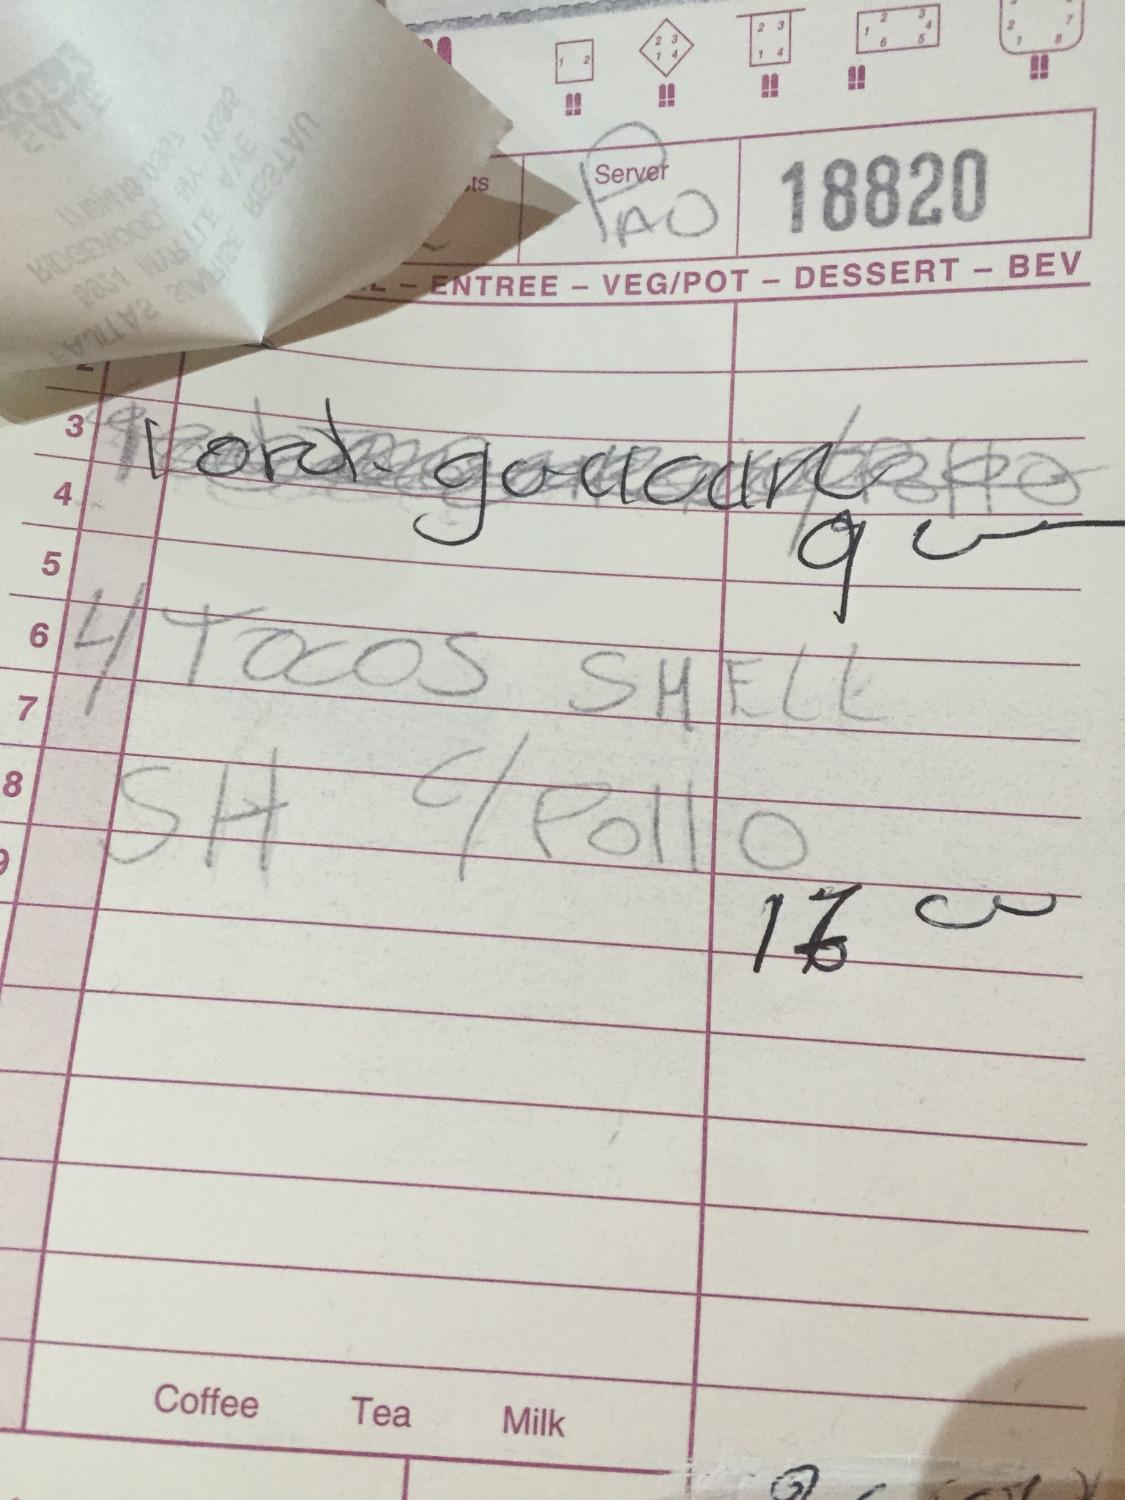 1 2
2 3
1 4
2 3
1 4
2 3
1 4
6 5
2 7
1 8
Server
PAO
18820
– ENTREE – VEG/POT – DESSERT – BEV
3
1 ord.
4
9
5
6
4 TACOS SHELL
7
8
SH C/Pollo
9
16
Coffee Tea Milk